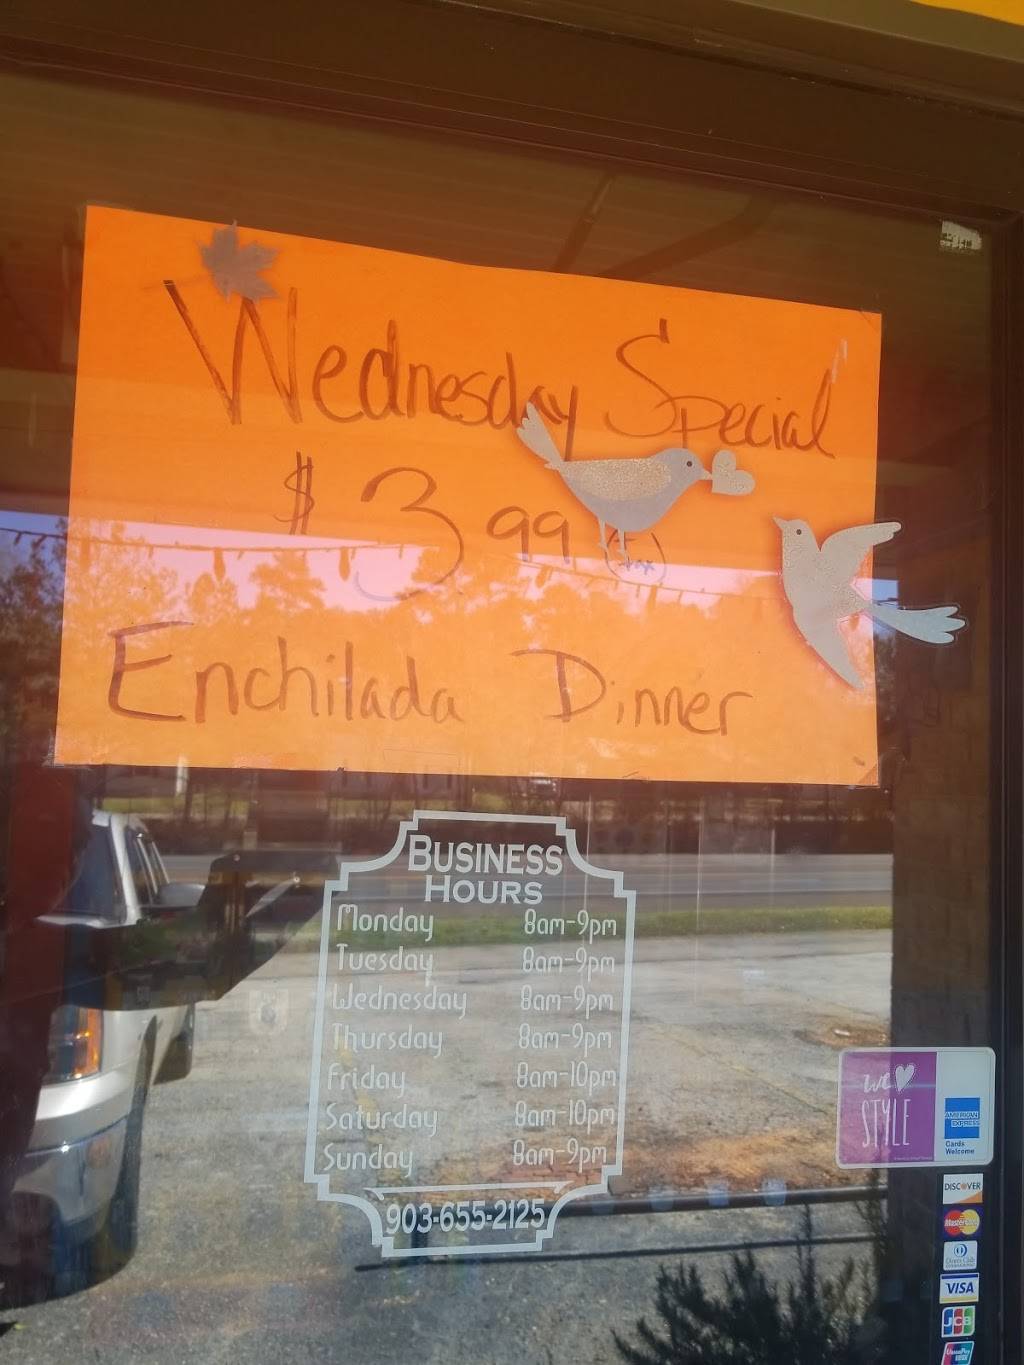 Wednesday Special
$3.99 (tax)
Enchilada Dinner
BUSINESS
HOURS
Monday 8am-9pm
Tuesday 8am-9pm
Wednesday 8am-9pm
Thursday 8am-9pm
Friday 8am-10pm
Saturday 8am-10pm
Sunday 8am-9pm
903-655-2125
we
STYLE
AMERICAN
EXPRESS
Cards
Welcome
DISCOVER
MasterCard
VISA
JCB
UnionPay